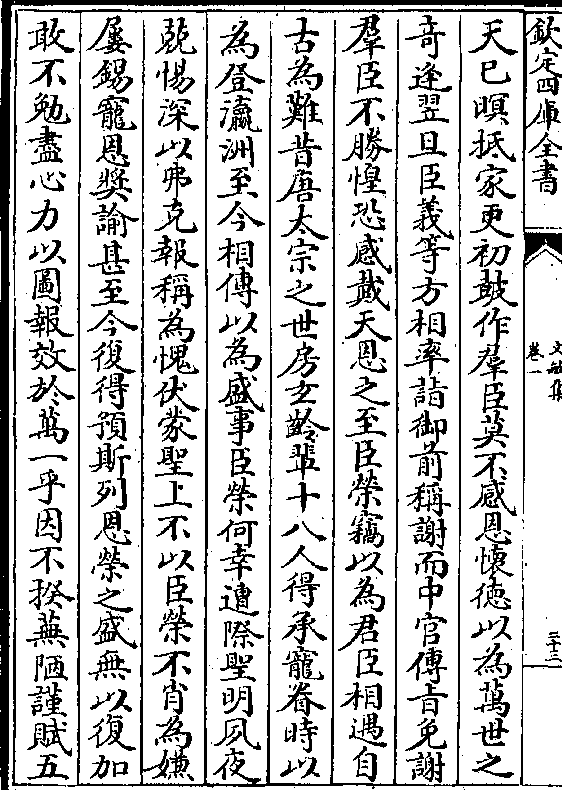 欽定四庫全書
文敏集
卷一
三十三
天已暝抵家更初鼓作羣臣莫不感恩懷德以為萬世之
奇逢翌旦臣義等方相率詣御前稱謝而中官傳旨免謝
羣臣不勝惶恐感戴天恩之至臣榮竊以為君臣相遇自
古為難昔唐太宗之世房玄齡輩十八人得承寵眷時以
為登瀛洲至今相傳以為盛事臣榮何幸遭際聖明夙夜
兢惕深以弗克報稱為愧伏蒙聖上不以臣榮不肖為嫌
屢錫寵恩奬諭甚至今復得預斯列恩榮之盛無以復加
敢不勉盡心力以圖報效於萬一乎因不揆蕪陋謹賦五